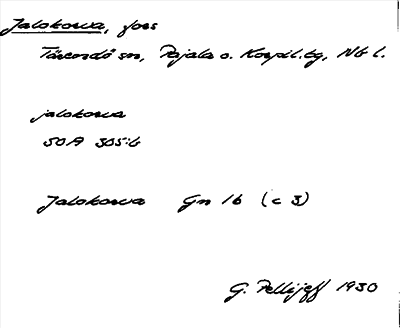 Jalokorva, fors
Tärendö sn, Pajala o. Korpil. tg, Nb l.
jalokorva
SOA 305:6
Jalokorva Gn 16 (c 3)
G. Pellijeff 1930